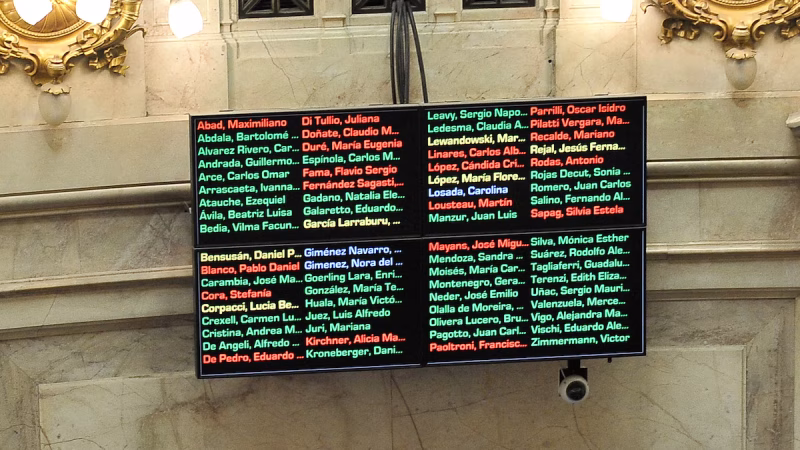 Abad, Maximiliano
Abdala, Bartolomé ...
Alvarez Rivero, Car...
Andrada, Guillermo...
Arce, Carlos Omar
Arrascaeta, Ivanna...
Atauche, Ezequiel
Ávila, Beatriz Luisa
Bedia, Vilma Facun...
Di Tullio, Juliana
Doñate, Claudio M...
Duré, María Eugenia
Espínola, Carlos M...
Fama, Flavio Sergio
Fernández Sagasti,...
Gadano, Natalia Ele...
Galaretto, Eduardo...
García Larraburu, ...
Leavy, Sergio Napo...
Ledesma, Claudia A...
Lewandowski, Mar...
Linares, Carlos Alb...
López, Cándida Cri...
López, María Flore...
Losada, Carolina
Lousteau, Martín
Manzur, Juan Luis
Parrilli, Oscar Isidro
Pilatti Vergara, Ma...
Recalde, Mariano
Rejal, Jesús Ferna...
Rodas, Antonio
Rojas Decut, Sonia ...
Romero, Juan Carlos
Salino, Fernando Al...
Sapag, Silvia Estela
Bensusán, Daniel P...
Blanco, Pablo Daniel
Carambia, José Ma...
Cora, Stefanía
Corpacci, Lucia Be...
Crexell, Carmen Lu...
Cristina, Andrea M...
De Angeli, Alfredo ...
De Pedro, Eduardo ...
Giménez Navarro, ...
Gimenez, Nora del ...
Goerling Lara, Enri...
González, María Te...
Huala, María Victó...
Juez, Luis Alfredo
Juri, Mariana
Kirchner, Alicia Ma...
Kroneberger, Dani...
Mayans, José Migu...
Mendoza, Sandra ...
Moisés, María Car...
Montenegro, Gera...
Neder, José Emilio
Olalla de Moreira, ...
Olivera Lucero, Bru...
Pagotto, Juan Carl...
Paoltroni, Francisc...
Silva, Mónica Esther
Suárez, Rodolfo Ale...
Tagliaferri, Guadalu...
Terenzi, Edith Eliza...
Uñac, Sergio Mauri...
Valenzuela, Merce...
Vigo, Alejandra Ma...
Vischi, Eduardo Ale...
Zimmermann, Victor